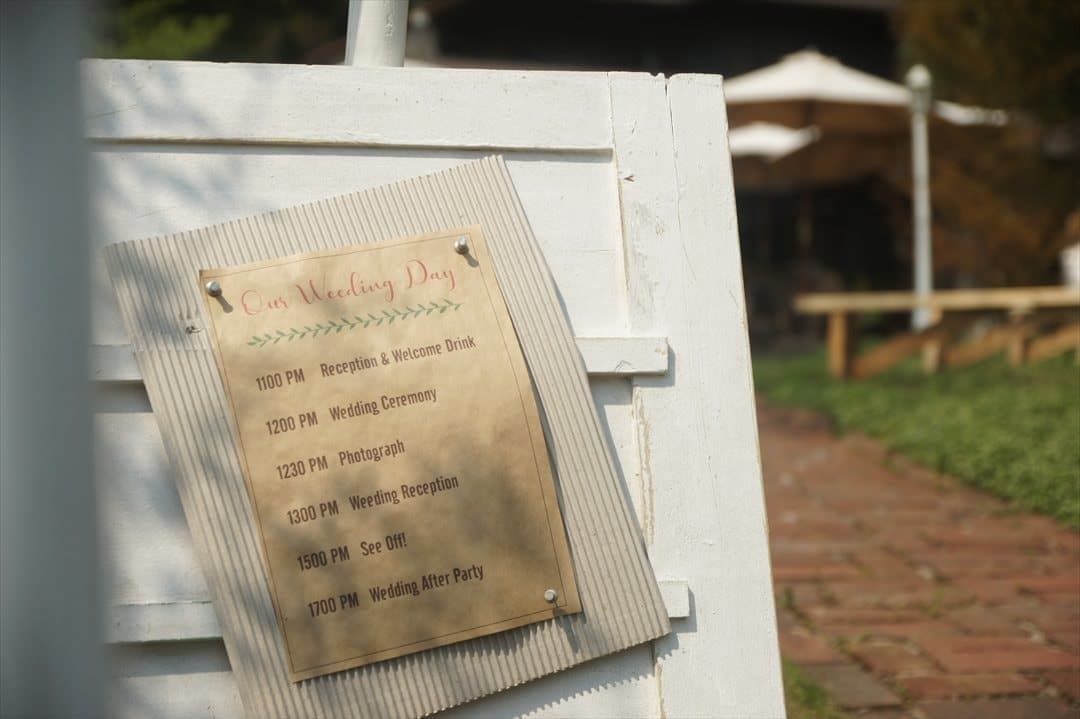 Our Weeding Day
1100 PM Reception & Welcome Drink
1200 PM Wedding Ceremony
1230 PM Photograph
1300 PM Weeding Reception
1500 PM See Off!
1700 PM Wedding After Party